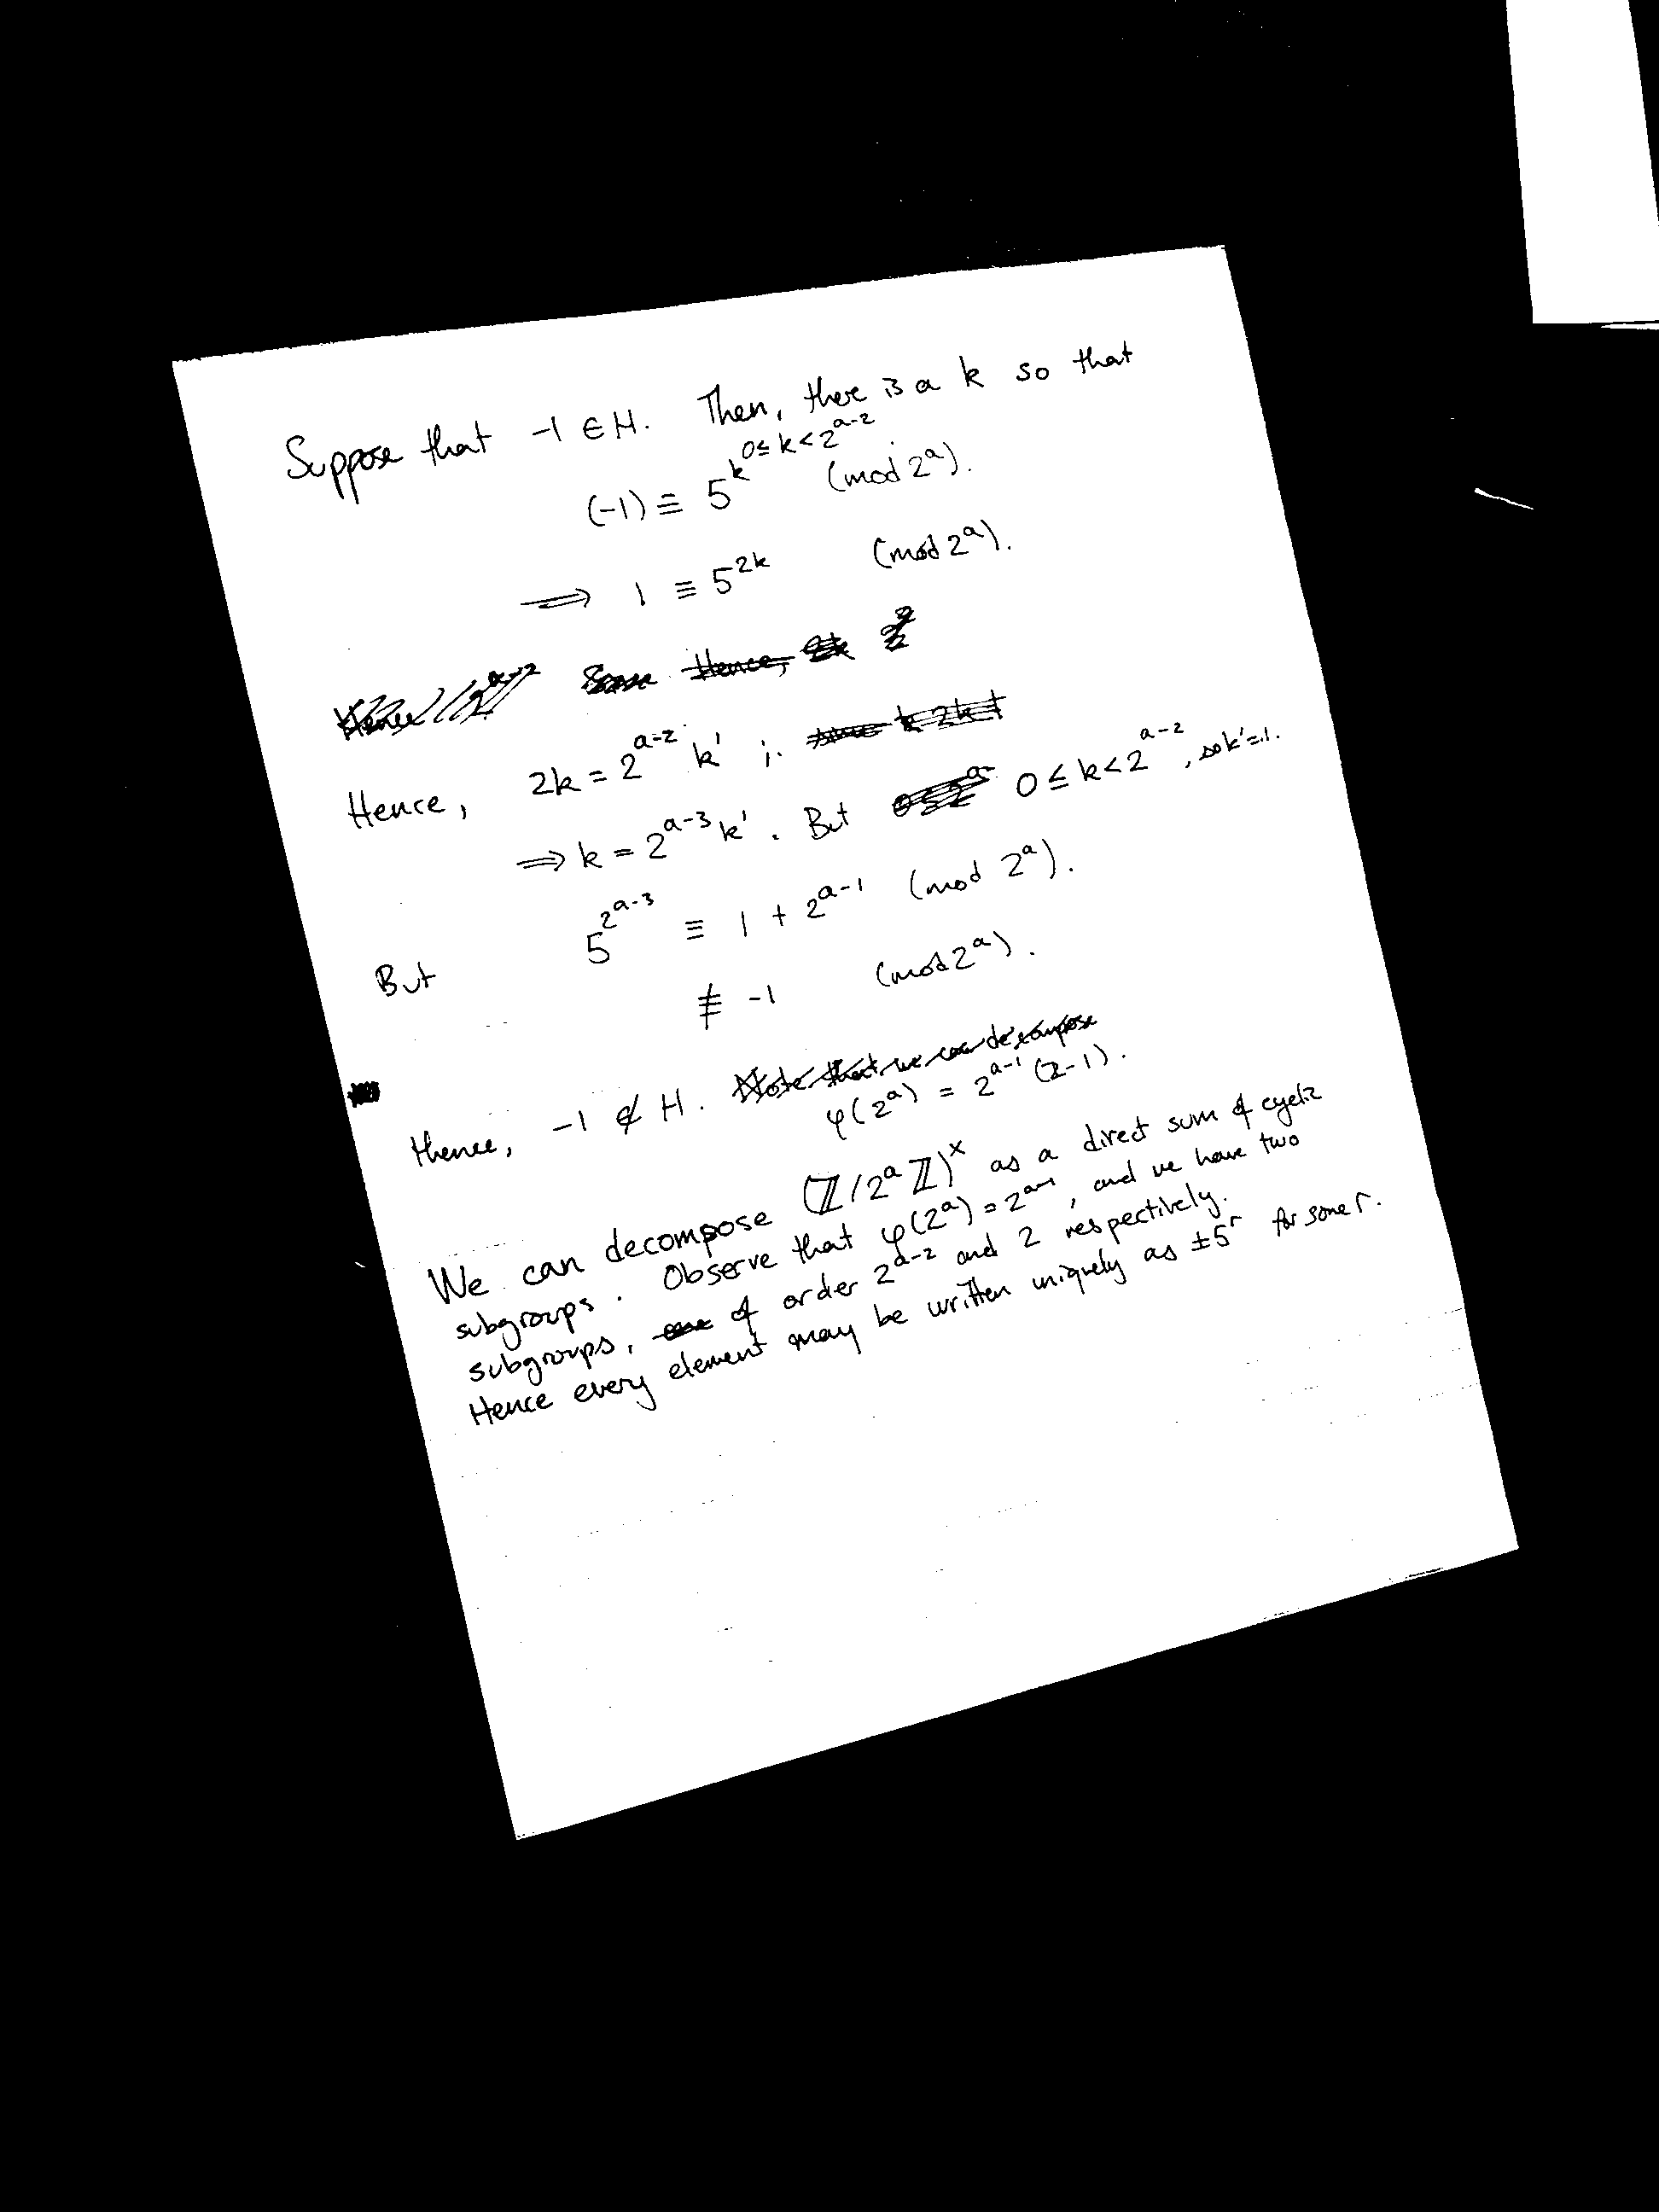 Suppose that -1 ∈ H. Then, there is a k so that
0 ≤ k < 2^{a-2}
(-1) ≡ 5^k (mod 2^a).
⟹ 1 ≡ 5^{2k} (mod 2^a).
Hence, 2k = 2^{a-2} k' ;.
⟹ k = 2^{a-3} k'. But 0 ≤ k < 2^{a-2}, so k'=1.
But 5^{2^{a-3}} ≡ 1 + 2^{a-1} (mod 2^a).
≢ -1 (mod 2^a).
Hence, -1 ∉ H. Note that we can decompose
φ(2^a) = 2^{a-1}(2-1).
We can decompose (ℤ/2^aℤ)^× as a direct sum of cyclic
subgroups. Observe that φ(2^a) = 2^{a-1}, and we have two
subgroups, one of order 2^{a-2} and 2 respectively.
Hence every element may be written uniquely as ±5^r for some r.